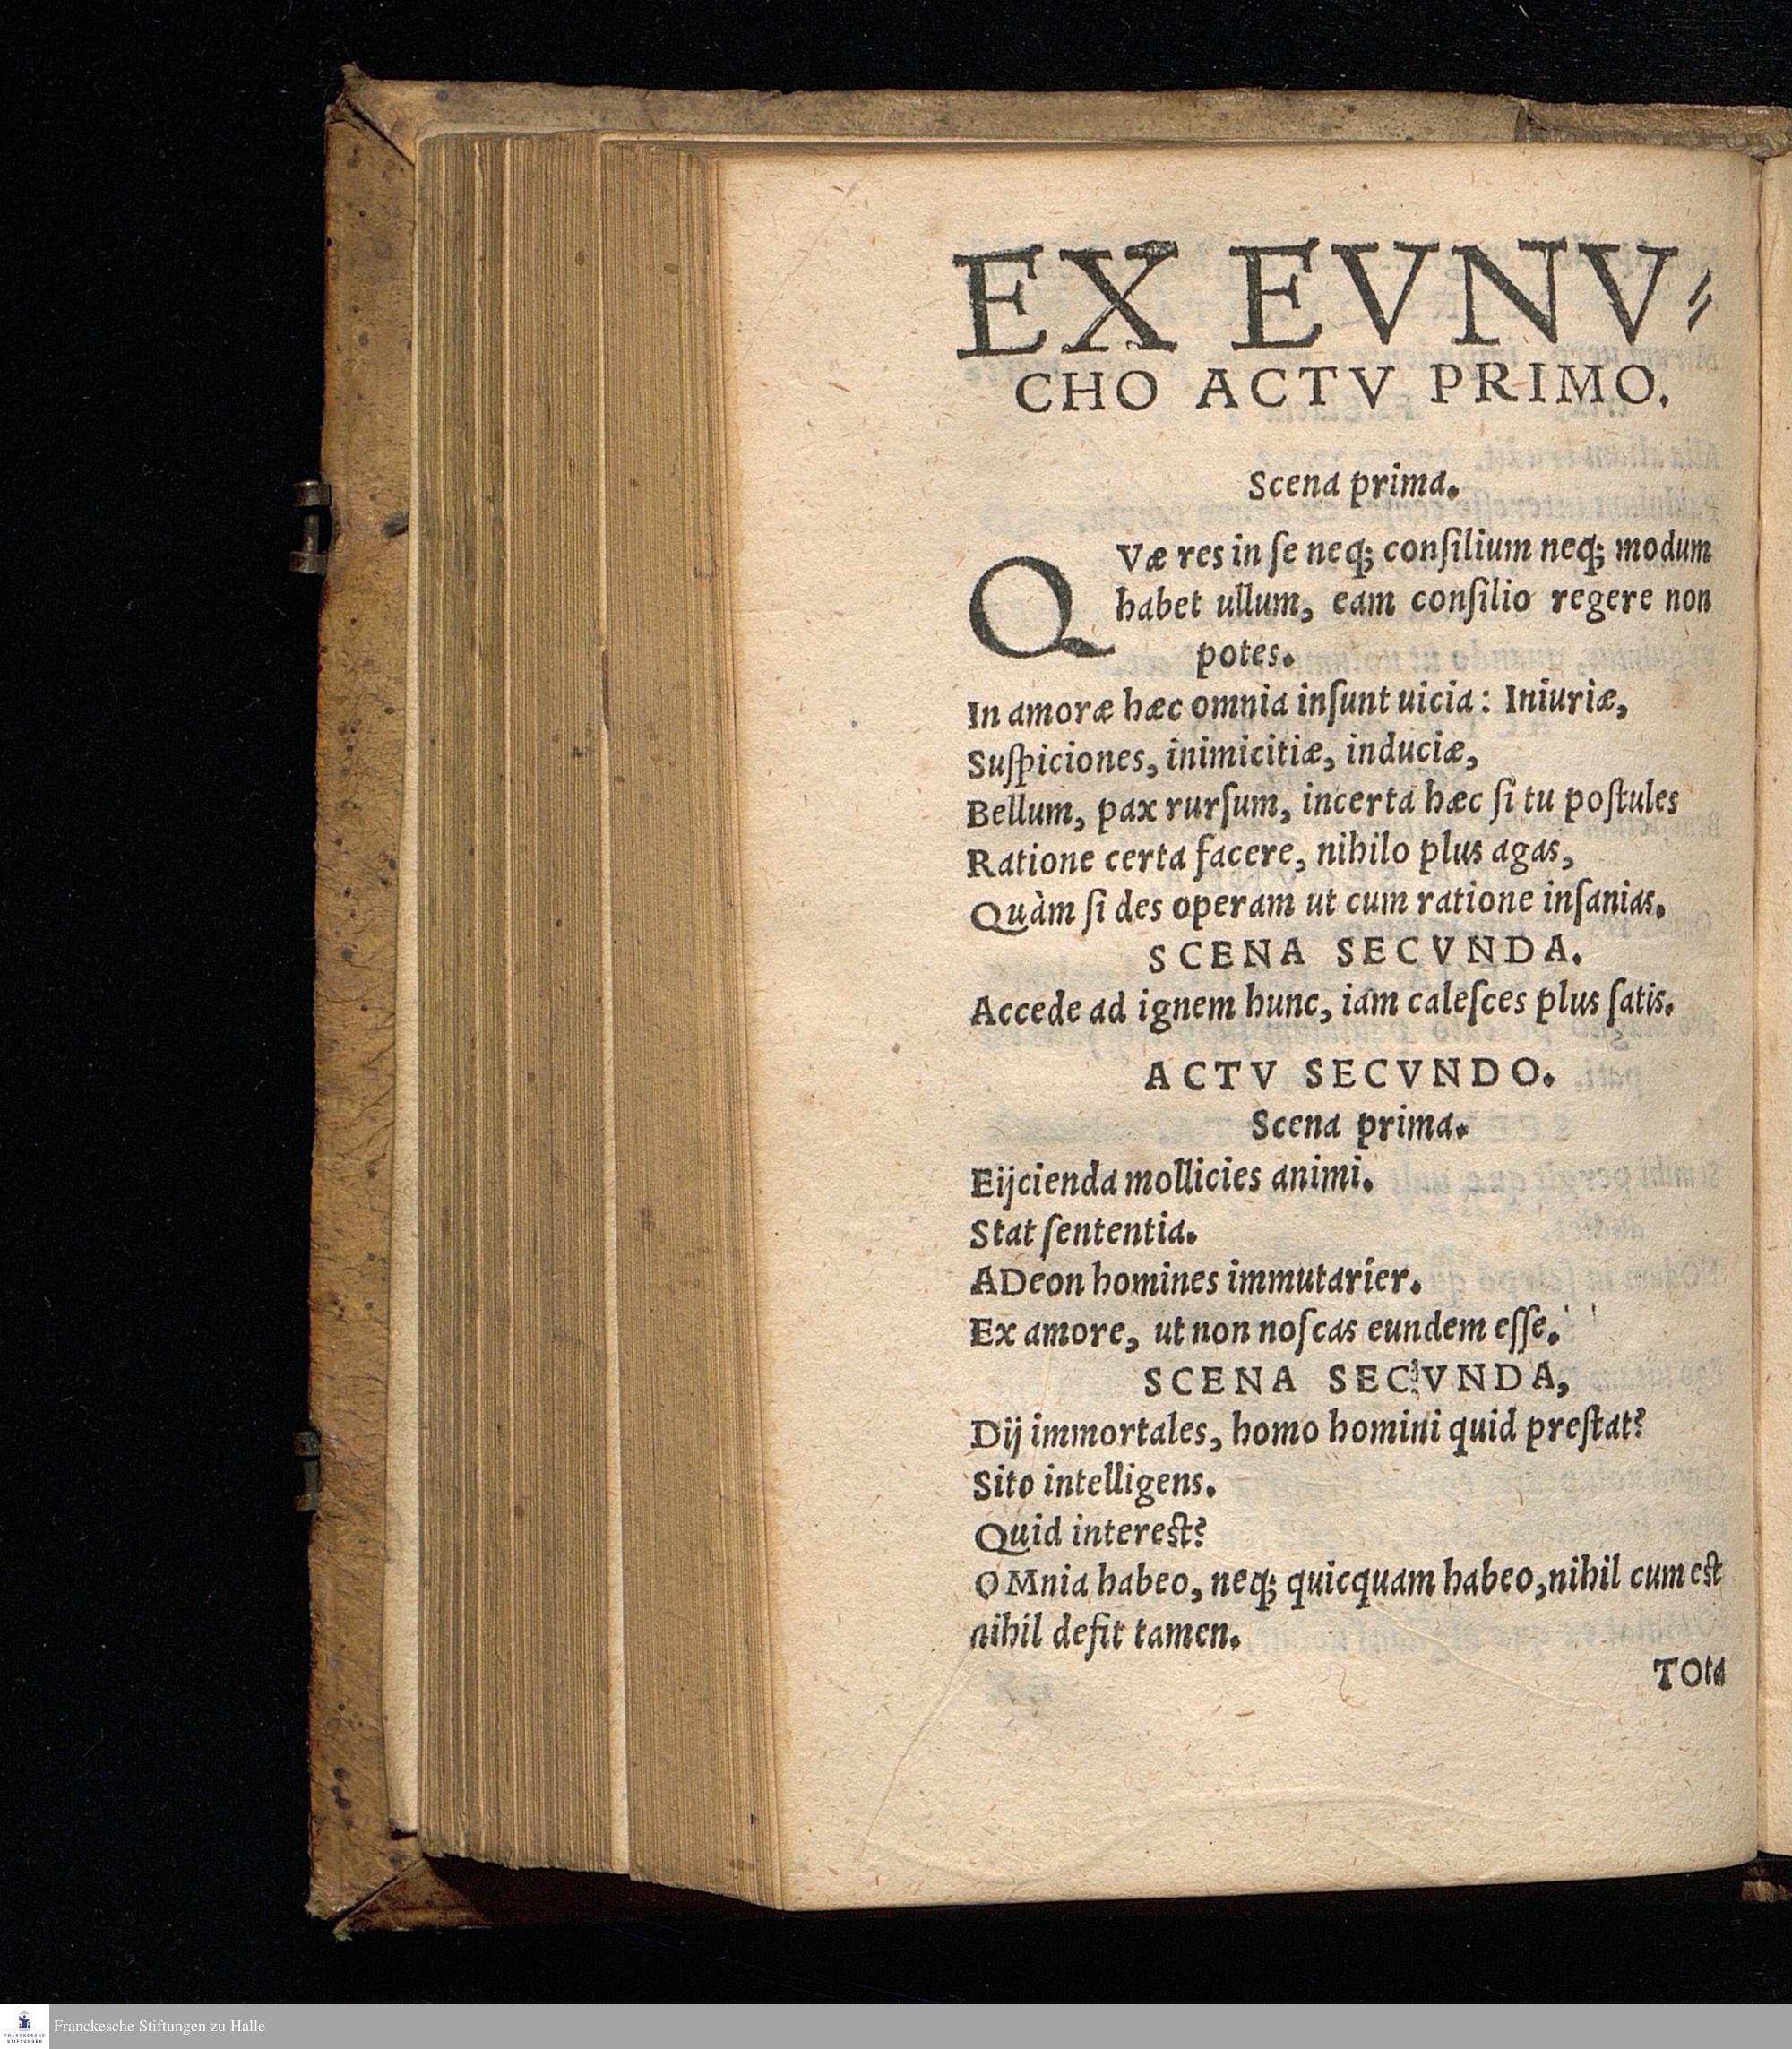 EX EVNV⸗
CHO ACTV PRIMO.
Scena prima.
QVæ res in ſe neq; conſilium neq; modum
habet ullum, eam conſilio regere non
potes.
In amoræ hæc omnia inſunt uicia: Iniuriæ,
Suſpiciones, inimicitiæ, induciæ,
Bellum, pax rurſum, incerta hæc ſi tu poſtules
Ratione certa facere, nihilo plus agas,
Quàm ſi des operam ut cum ratione inſanias.
SCENA SECVNDA.
Accede ad ignem hunc, iam caleſces plus ſatis.
ACTV SECVNDO.
Scena prima.
Eijcienda mollicies animi.
Stat ſententia.
ADeon homines immutarier.
Ex amore, ut non noſcas eundem eſſe.
SCENA SECVNDA,
Dij immortales, homo homini quid preſtat?
Sito intelligens.
Quid intereſt?
OMnia habeo, neq; quicquam habeo, nihil cum eſt
nihil defit tamen.
TOta
FRANCKESCHE
STIFTUNGEN
Franckesche Stiftungen zu Halle